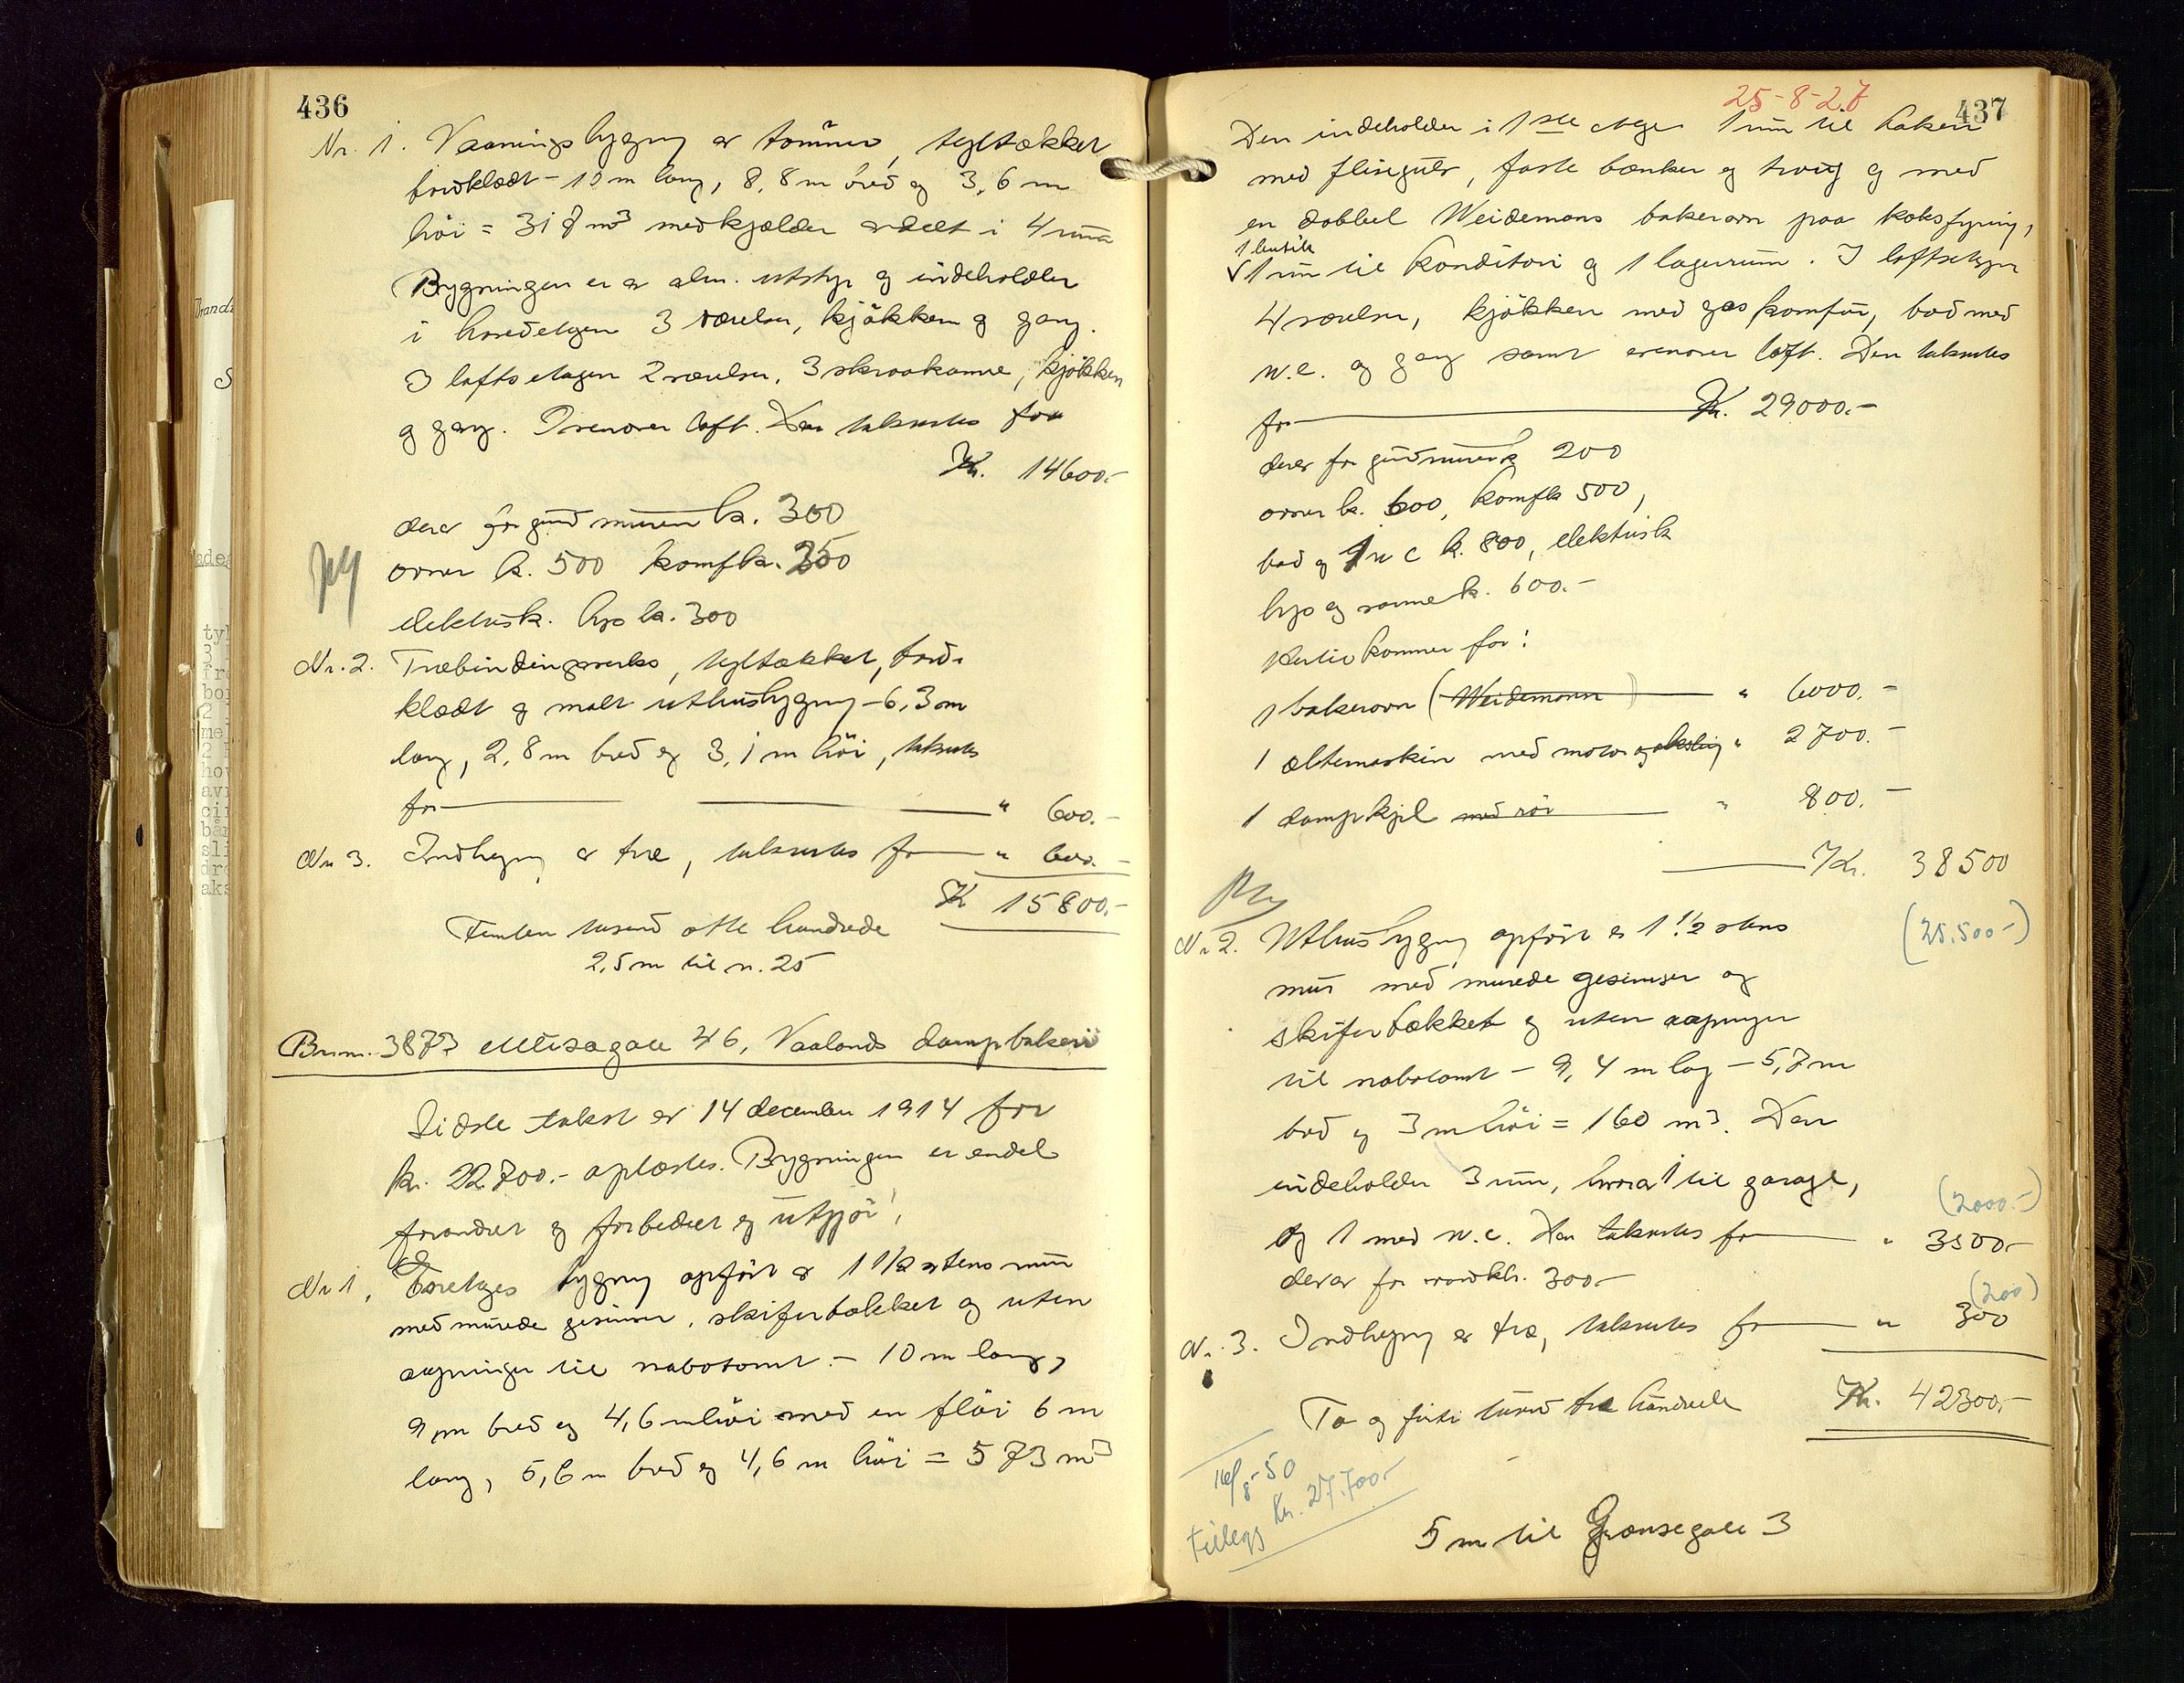 436
Nr. 1. Vaaningsbygning av tømmer, tegltækket
bordklædt - 10 m lang, 8,8 m bred og 3,6 m
høi = 317 m³ med kjælder avdelt i 4 rum
Bygningen er av alm. utstyr og indeholder
i hovedetagen 3 værelser, kjøkken og gang.
I loftsetagen 2 værelser, 3 skraakamre, kjøkken
og gang. Ovenover loft. Den takseres for
Kr. 14600.-
derav for grundmuren kr. 300
ovner kr. 500 komf kr. 350
elektrisk. lys kr. 300
Nr. 2. Træbindingsverks, tegltækket, bord-
klædt og malt uthusbygning - 6,3 m
lang, 2,8 m bred og 3,1 m høi, takseres
for " 600.-
Nr 3. Indhegning av træ, takseres for " 600.-
Kr 15800.-
Femten tusend otte hundrede
2,5 m til n. 25
Brnr. 3873 Misagate 46, Vaalands dampbakeri
Sidste takst av 14 december 1914 for
kr. 22700.- oplæstes. Bygningen er endel
forandret og forbedret og utgjør:
Nr 1. Toetages bygning opført av 1 1/2 stens mur
med murede gesimser, skifertækket og uten
aapninger til nabotomt. - 10 m lang,
9 m bred og 4,6 m høi med en fløi 6 m
lang, 5,6 m bred og 4,6 m høi = 573 m³
25-8-27
437
Den indeholder i 1ste etage 1 rum til bakeri
med flisegulv, faste bænker og traug og med
en dobbel Weidemans bakerovn paa koksfyring,
1 butik
1 rum til konditori og 1 lagerrum. I loftsetagen
4 værelser, kjøkken med gaskomfur, bad med
w.c. og gang samt ovenover loft. Den takseres
for Kr. 29000.-
derav for grundmuren kr 200
ovner kr. 600, komf kr 500,
bad og 1 w c kr. 800, elektrisk
lys og varme kr. 600.-
Hertil kommer for:
1 bakerovn (Weidemann) " 6000.-
1 æltemaskin med motor og aksling " 2700.-
1 dampkjel med rør " 800.-
Kr. 38500
(25.500-)
Nr 2. Uthusbygning opført av 1 1/2 stens
mur med murede gesimser og
skifertækket og uten aapninger
til nabotomt - 9,4 m lang - 5,7 m
bred og 3 m høi = 160 m³. Den
indeholder 3 rum, hvorav 1 til garage,
(2000.-)
og 1 med w.c. Den takseres for " 3500.-
derav for kr. 300.-
(200)
Nr. 3. Indhegning av træ, takseres for " 300
Kr. 42300.-
To og firti tusend tre hundrede
16/8-50
tillegg Kr. 27.700.-
5 m til Grænsegate 3